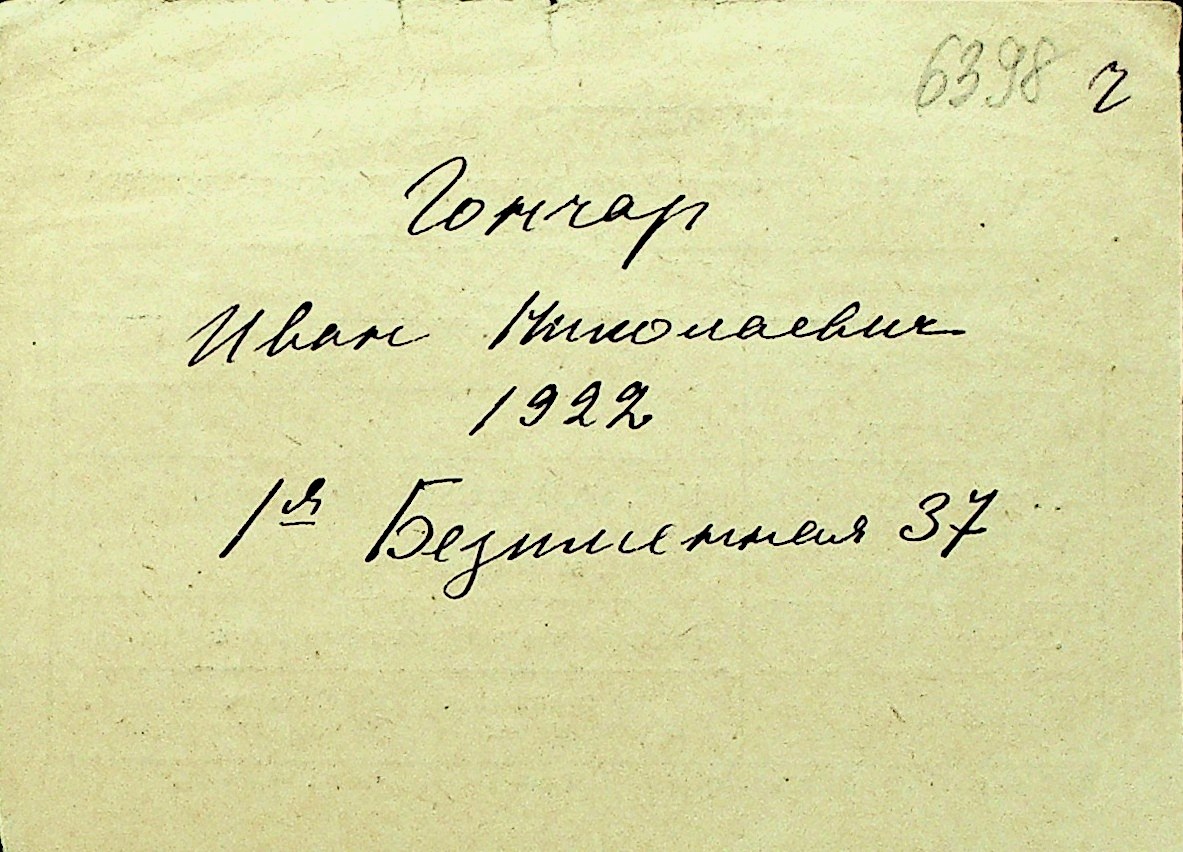 6398 г
Гончар
Иван Николаевич
1922
1я Безыменная 37